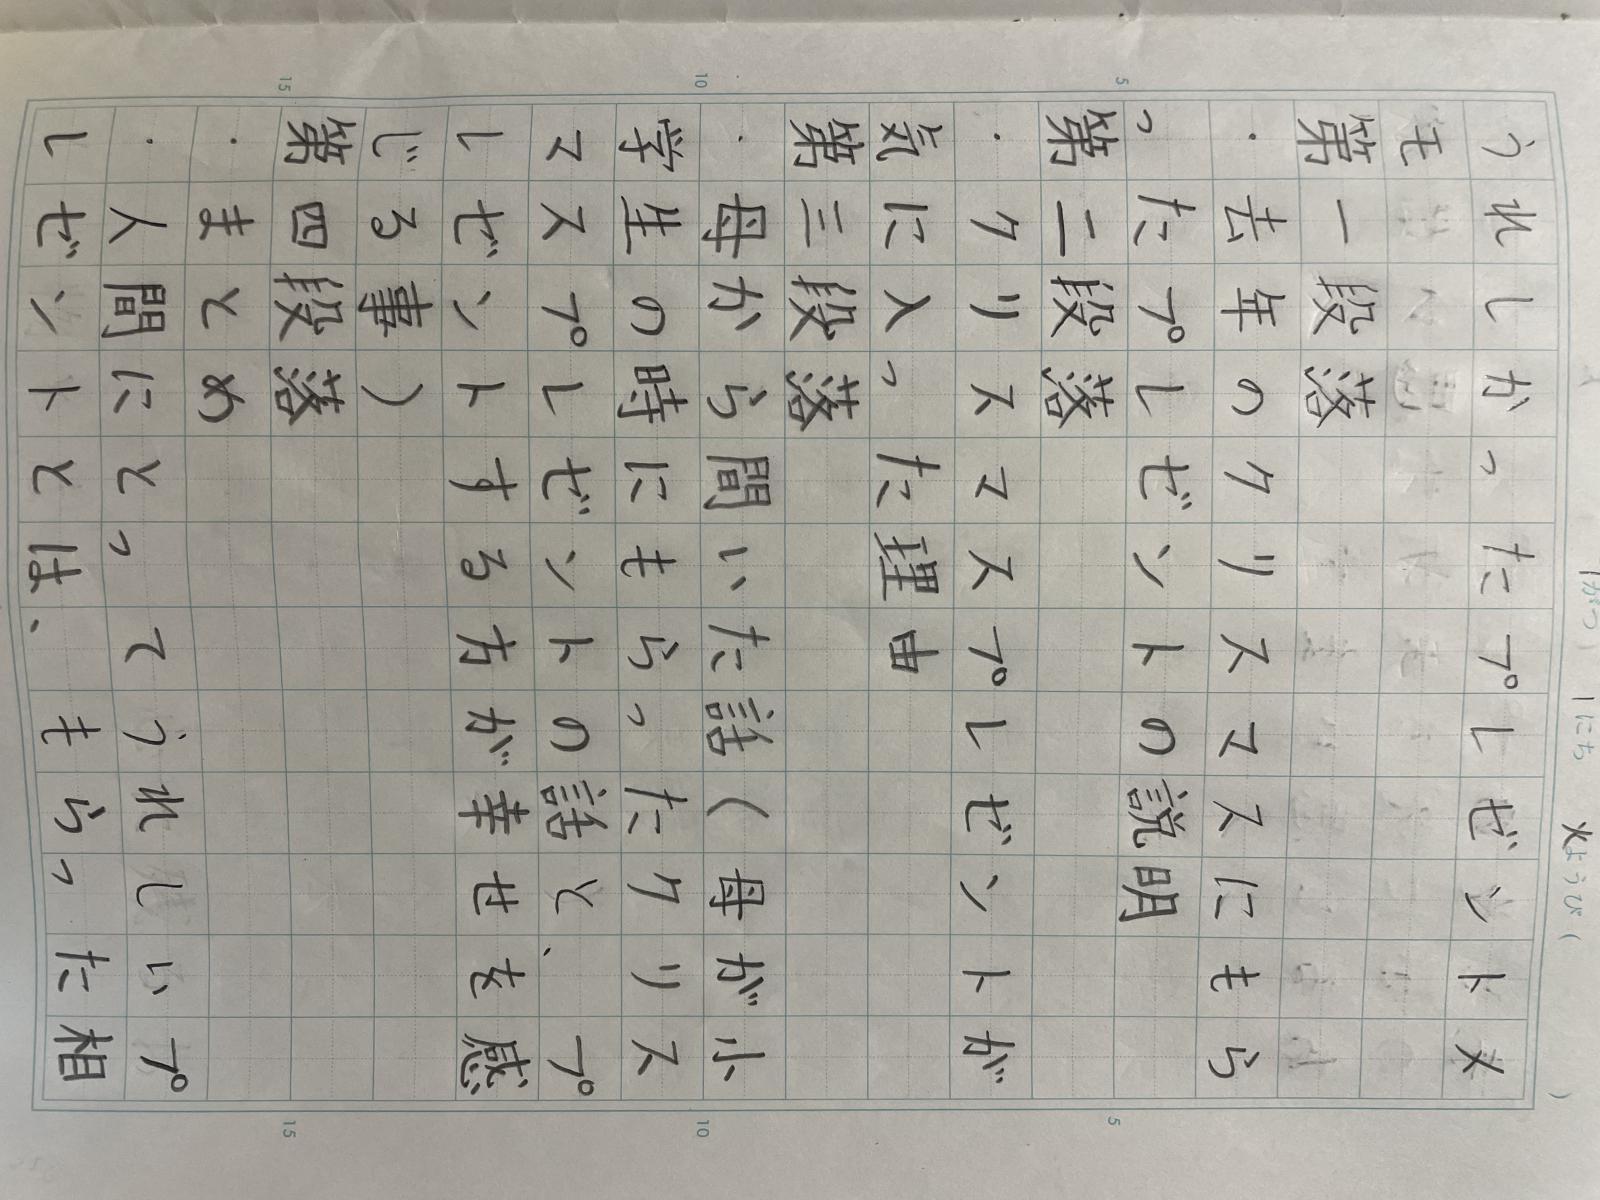 うれしかったプレゼントメ
モ
第一段落
・去年のクリスマスにもら
ったプレゼントの説明
第二段落
・クリスマスプレゼントが
気に入った理由
第三段落
・母から聞いた話(母が小
学生の時にもらったクリス
マスプレゼントの話と、プ
レゼントする方が幸せを感
じる事)
第四段落
・まとめ
・人間にとってうれしいプ
レゼントとは、もらった相